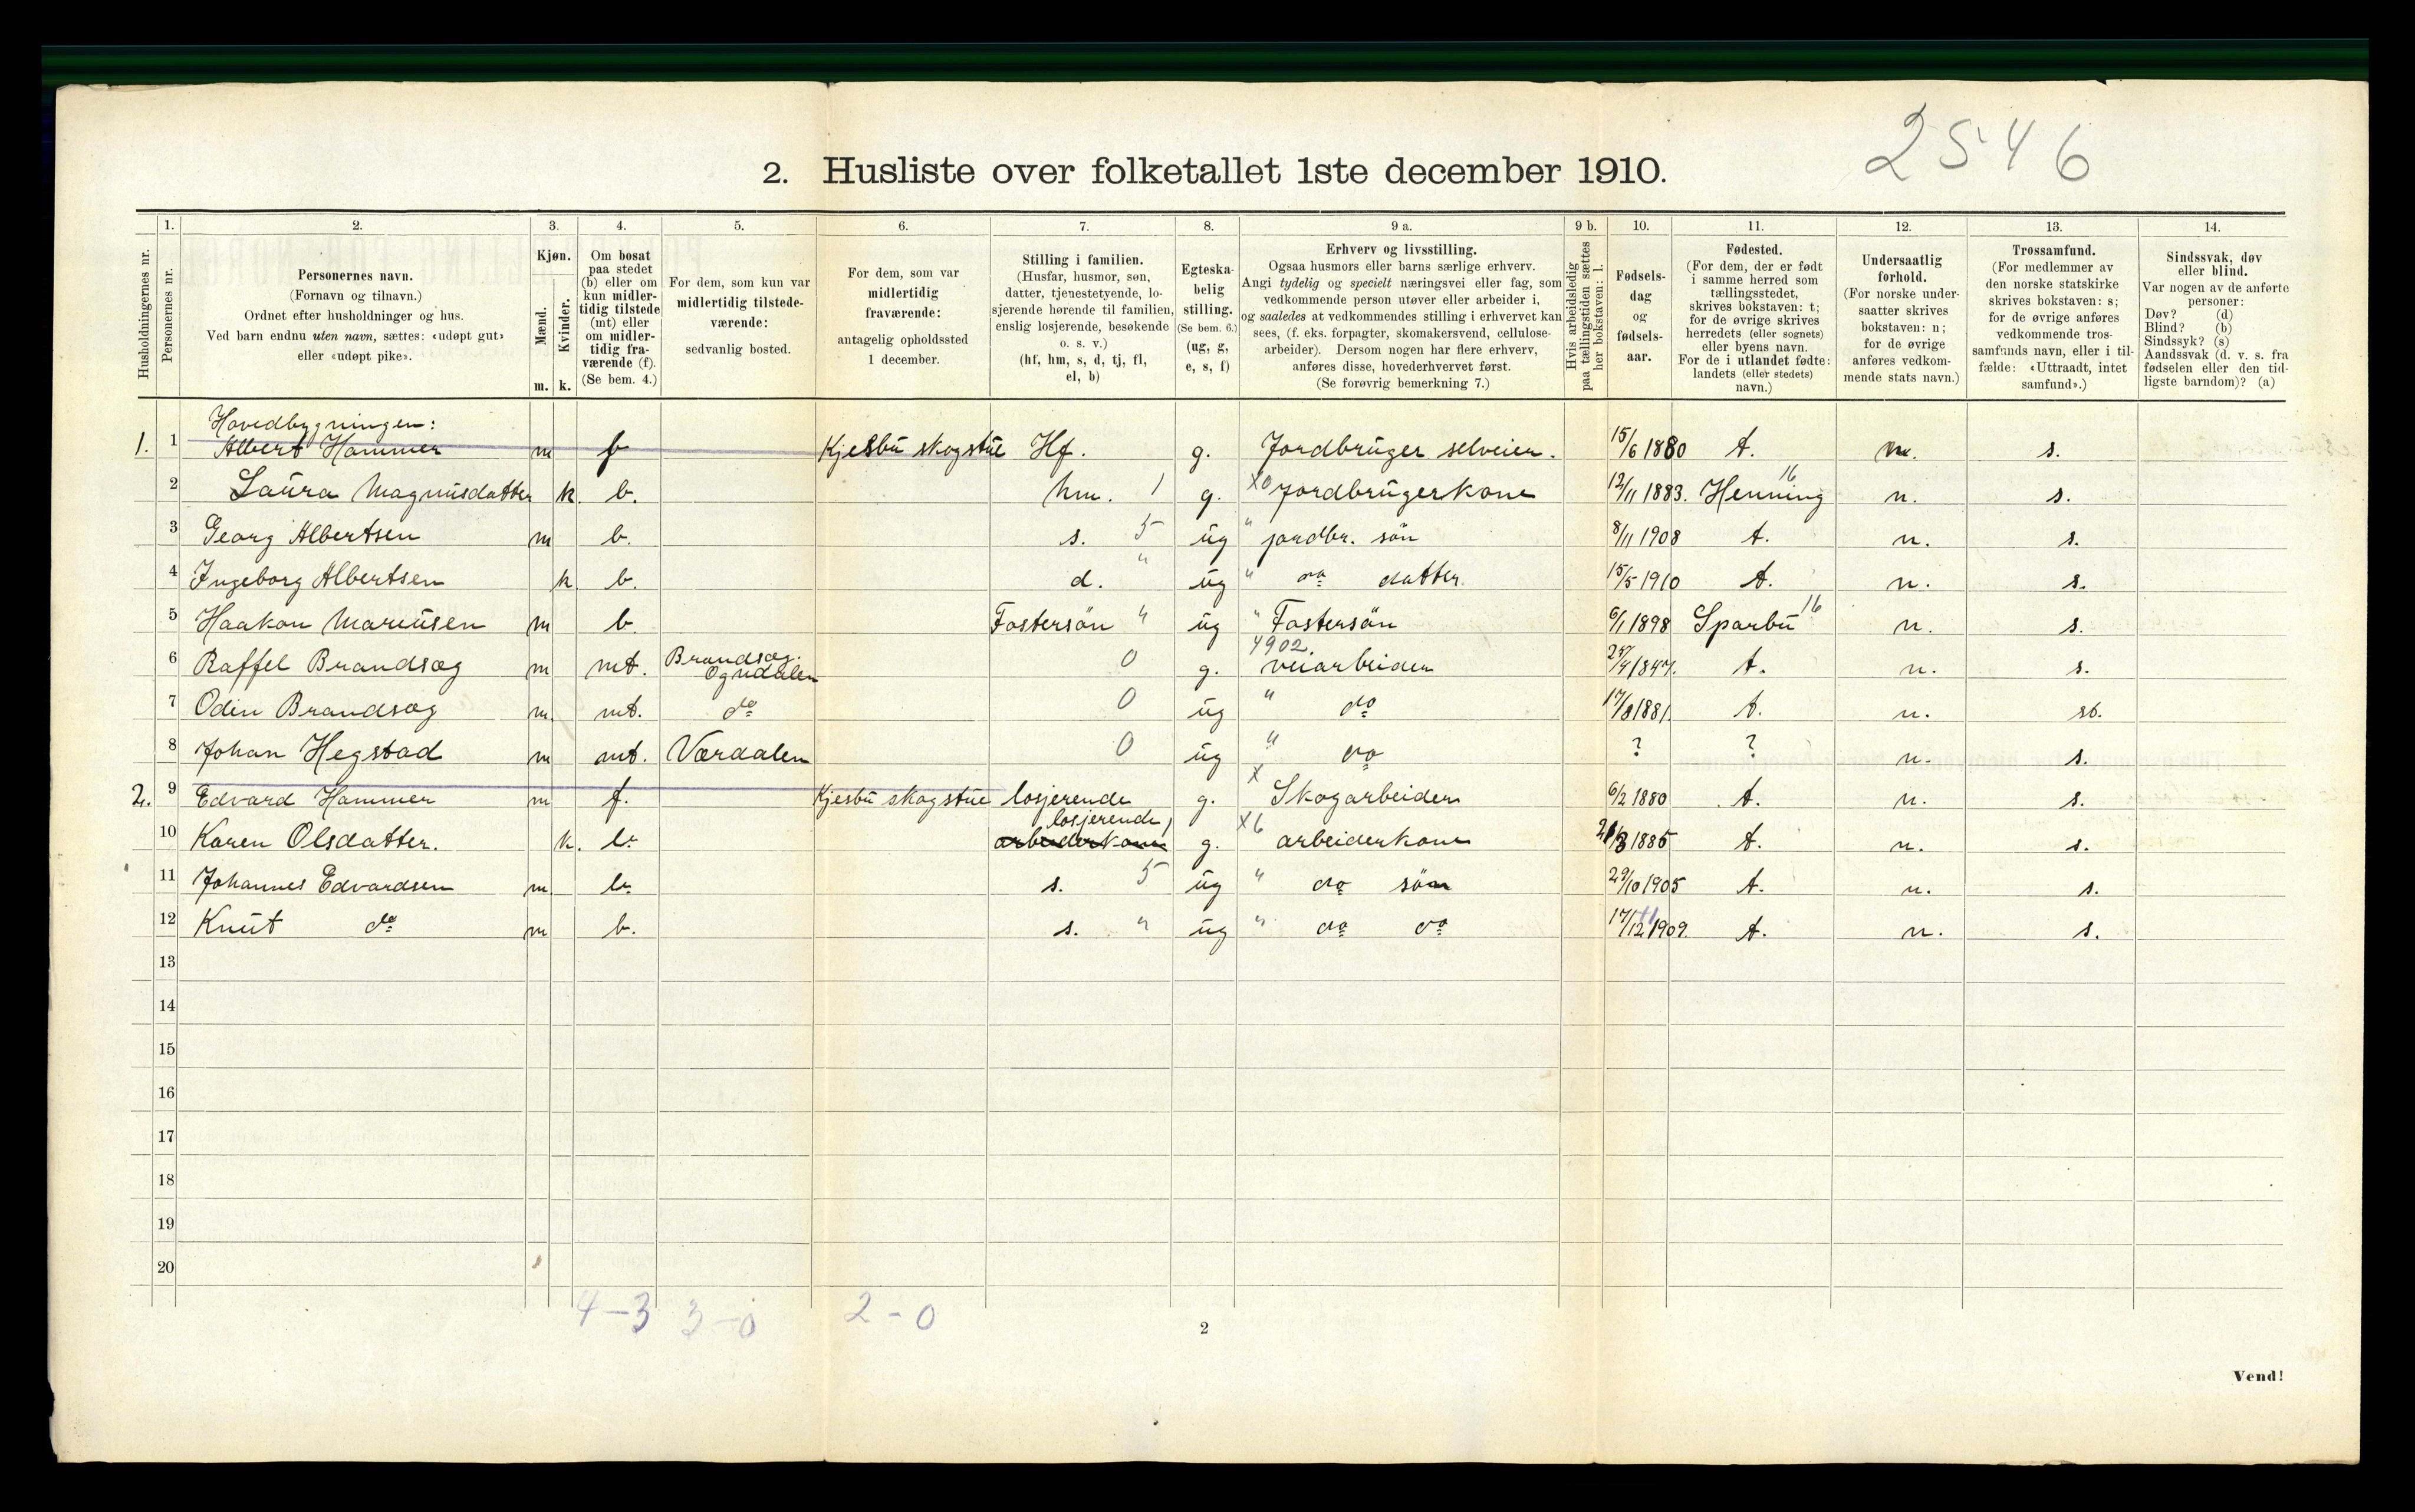 2546
2. Husliste over folketallet 1ste december 1910.
Husholdningernes nr.
1.
Personernes nr.
2.
Personernes navn.
(Fornavn og tilnavn.)
Ordnet efter husholdninger og hus.
Ved barn endnu uten navn, sættes: «udøpt gut»
eller «udøpt pike».
3.
Kjøn.
Mænd.
Kvinder.
m. k.
4.
Om bosat
paa stedet
(b) eller om
kun midler-
tidig tilstede
(mt) eller
om midler-
tidig fra-
værende (f).
(Se bem. 4.)
5.
For dem, som kun var
midlertidig tilstede-
værende:
sedvanlig bosted.
6.
For dem, som var
midlertidig
fraværende:
antagelig opholdssted
1 december.
7.
Stilling i familien.
(Husfar, husmor, søn,
datter, tjenestetyende, lo-
sjerende hørende til familien,
enslig losjerende, besøkende
o. s. v.)
(hf, hm, s, d, tj, fl,
el, b)
8.
Egteska-
belig
stilling.
(Se bem. 6.)
(ug, g,
e, s, f)
9 a.
Erhverv og livsstilling.
Ogsaa husmors eller barns særlige erhverv.
Angi tydelig og specielt næringsvei eller fag, som
vedkommende person utøver eller arbeider i,
og saaledes at vedkommendes stilling i erhvervet kan
sees, (f. eks. forpagter, skomakersvend, cellulose-
arbeider). Dersom nogen har flere erhverv,
anføres disse, hovederhvervet først.
(Se forøvrig bemerkning 7.)
9 b.
Hvis arbeidsledig
paa tællingstiden sættes
her bokstaven: l.
10.
Fødsels-
dag
og
fødsels-
aar.
11.
Fødested.
(For dem, der er født
i samme herred som
tællingsstedet,
skrives bokstaven: t;
for de øvrige skrives
herredets (eller sognets)
eller byens navn.
For de i utlandet fødte:
landets (eller stedets)
navn.)
12.
Undersaatlig
forhold.
(For norske under-
saatter skrives
bokstaven: n;
for de øvrige
anføres vedkom-
mende stats navn.)
13.
Trossamfund.
(For medlemmer av
den norske statskirke
skrives bokstaven: s;
for de øvrige anføres
vedkommende tros-
samfunds navn, eller i til-
fælde: «Uttraadt, intet
samfund».)
14.
Sindssvak, døv
eller blind.
Var nogen av de anførte
personer:
Døv? (d)
Blind? (b)
Sindssyk? (s)
Aandssvak (d. v. s. fra
fødselen eller den tid-
ligste barndom)? (a)
Hovedbygningen:
1. 1 Albert Hammer m f Kjesbu skogstue Hf. g. Jordbruger selveier. 15/6 1880 t. n. s.
2 Laura Magnusdatter k. b. hm. 1 g. x0 Jordbrugerkone 12/11 1883. Henning 16 n. s.
3 Georg Albertsen m b. s. 5 ug " jordbr. søn 8/11 1908 t. n. s.
4 Ingeborg Albertsen k b. d. " ug " do datter 15/5 1910 t. n. s.
5 Haakon Mariusen m b. Fostersøn " ug " Fostersøn 6/1 1898 Sparbu 16 n. s.
6 Raffel Brandsæg m mt. Brandsæg. Ogndalen 0 g. 4902. veiarbeider 1847. t. n. s.
7 Odin Brandsæg m. mt. do 0 ug " do 17/8 1881. t. n. s.
8 Johan Hegstad m mt. Værdalen 0 ug " do ? ? n. s.
2. 9 Edvard Hammer m f. Kjesbu skogstue losjerende g. x Skogarbeider 6/2 1880 t. n. s.
10 Karen Olsdatter. k. b. arbeiderkone losjerende 1 g. x6 arbeiderkone 1885 t. n. s.
11 Johannes Edvardsen m b. s. 5 ug " do søn 29/10 1905 t. n. s.
12 Knut do m b. s. " ug " do do 17/12 11 1909. t. n. s.
13
14
15
16
17
18
19
20
4-3 3-0 2-0
2
Vend!